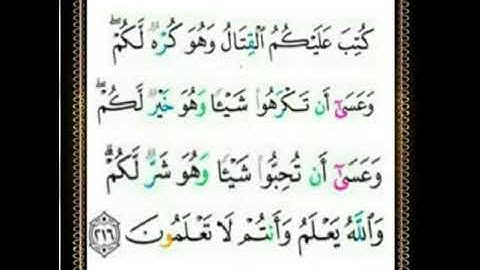 كُتِبَ عَلَيْكُمُ ٱلْقِتَالُ وَهُوَ كُرْهٌ لَّكُمْ ۖ
وَعَسَىٰٓ أَن تَكْرَهُوا۟ شَيْـًٔا وَهُوَ خَيْرٌ لَّكُمْ ۖ
وَعَسَىٰٓ أَن تُحِبُّوا۟ شَيْـًٔا وَهُوَ شَرٌّ لَّكُمْ ۗ
وَٱللَّهُ يَعْلَمُ وَأَنتُمْ لَا تَعْلَمُونَ ﴿٢١٦﴾